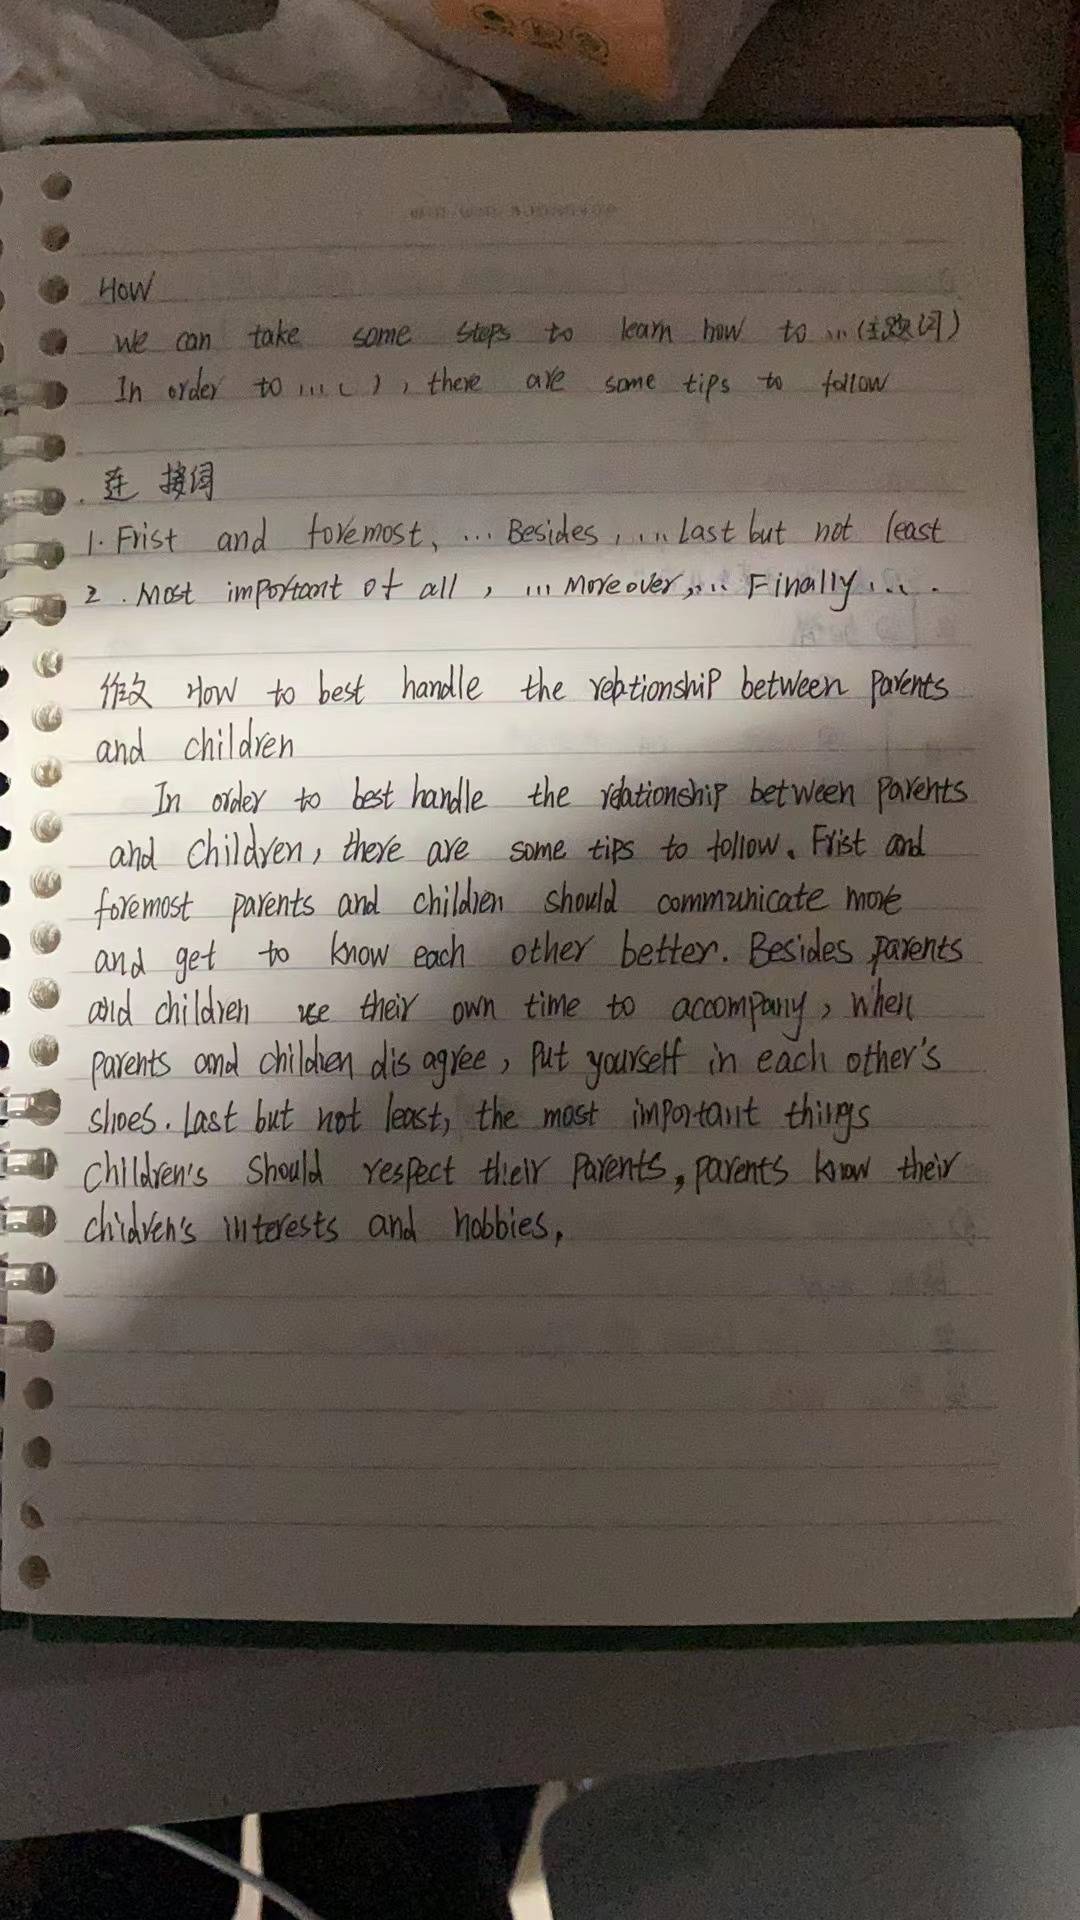 How
We can take some steps to learn how to ... (主题词)
In order to ... ( ), there are some tips to follow
. 连接词
1. Frist and foremost, ... Besides, ... Last but not least
2. Most important of all, ... Moreover, ... Finally ... .
作文 How to best handle the relationship between parents
and children
In order to best handle the relationship between parents
and children, there are some tips to follow. Frist and
foremost parents and children should communicate more
and get to know each other better. Besides parents
and children use their own time to accompany, when
parents and children disagree, put yourself in each other's
shoes. Last but not least, the most important things
children's should respect their parents, parents know their
chidren's interests and hobbies,